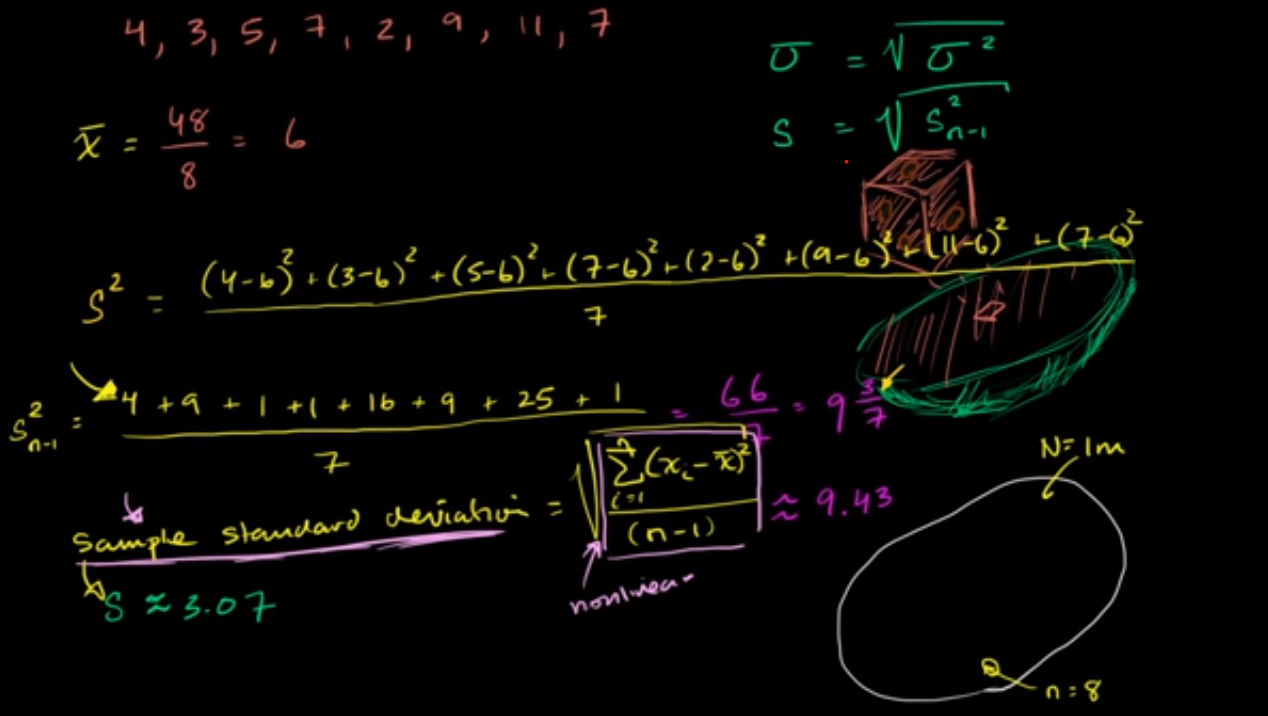 4, 3, 5, 7, 2, 9, 11, 7
σ = √σ²
x̄ = 48/8 = 6
S = √S²ₙ₋₁
S² = ((4-6)² + (3-6)² + (5-6)² + (7-6)² + (2-6)² + (9-6)² + (11-6)² + (7-6)²)/7
S²ₙ₋₁ = (4 + 9 + 1 + 1 + 16 + 9 + 25 + 1)/7 = 66/7 = 9 3/7
N=1m
Sample standard deviation = √(∑ᵢ₌₁ⁿ (xᵢ - x̄)²/(n-1)) ≈ 9.43
S ≈ 3.07
nonlinear
n=8